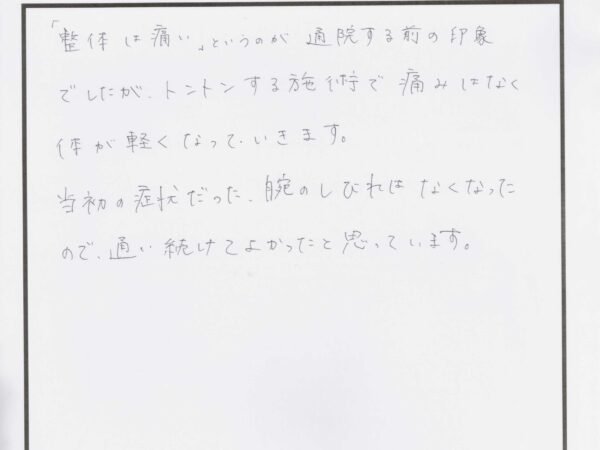 「整体は痛い」というのが通院する前の印象
でしたが、トントンする施術で痛みはなく
体が軽くなっていきます。
当初の症状だった、腕のしびれはなくなった
ので、通い続けてよかったと思っています。